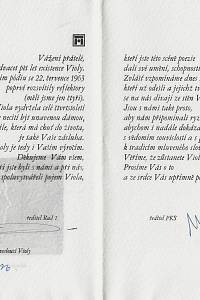 Vážení přátelé,
dvacet pět let existence Violy.
ím pódiu se 22. července 1963
poprvé rozsvítily reflektory
(měli jsme jen čtyři).
Viola vydržela celé čtvrtstoletí
necítí být unavenou dámou,
ile, která má chuť do života,
je také Vaše zásluha.
oly je tedy i Vaším výročím.
Děkujeme Vám všem,
teří jste byli s námi a při nás,
spoluvytvářeli pojem Viola,
ředitel Rad 1
kteří jste této scéně poezie
dali své umění, schopnosti
Zvlášť vzpomínáme dnes
kteří už odešli a jejichž tv
se na nás dívají ze stěn V
Jsou s námi také proto,
aby nám připomínali ryz
abychom i nadále dokáza
s vědomím souvislostí a s p
k tradicím mluveného slov
Věříme, že zůstanete Violo
Prosíme Vás o to
a ze srdce Vás upřímně po
ředitel PKS